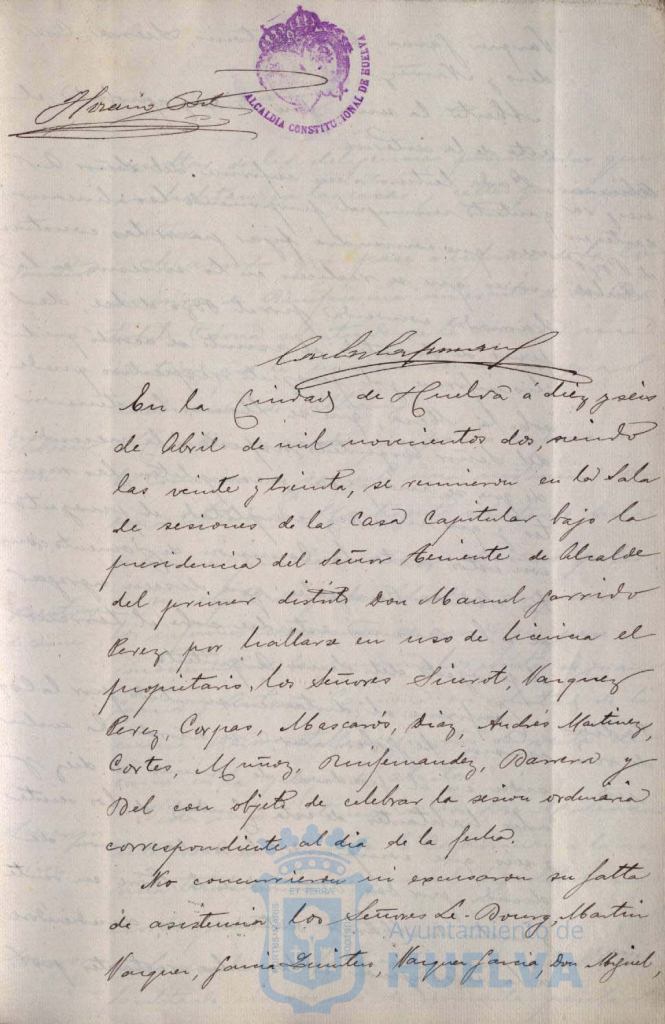 ALCALDIA CONSTITUCIONAL DE HUELVA
Horacio Bel
En la Ciudad de Huelva á diez y seis
de Abril de mil novecientos dos, siendo
las veinte y treinta, se reunieron en la Sala
de sesiones de la Casa Capitular bajo la
presidencia del Señor Teniente de Alcalde
del primer distrito Don Manuel Garrido
Perez por hallarse en uso de licencia el
propietario, los Señores Siurot, Vazquez
Perez, Corpas, Mascarós, Diaz, Andrés Martinez,
Cortes, Muñoz, Rinfernandez, Barrera y
Bel con objeto de celebrar la sesion ordinaria
correspondiente al dia de la fecha.
No concurrieron ni excusaron su falta
de asistencia los Señores Le-Bourg, Martin
Vazquez, Garcia Quintero, Vazquez Garcia, Don Miguel,
Ayuntamiento de
HUELVA